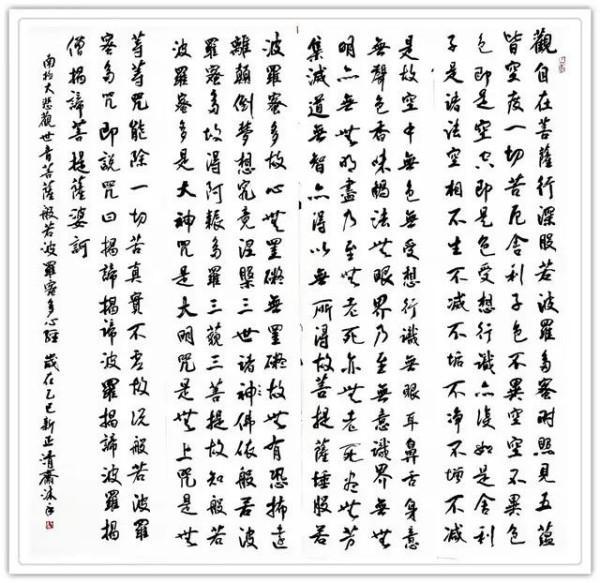 觀自在菩薩行深般若波羅多蜜时照見五蘊
皆空度一切苦厄舍利子色不異空空不異色
色即是空空即是色受想行識亦復如是舍利
子是諸法空相不生不减不垢不净不增不减
是故空中無色無受想行識無眼耳鼻舌身意
無聲色香味觸法無眼界乃至無意識界無無
明亦無無明盡乃至無老死亦無老死盡無苦
集滅道無智亦得以無所得故菩提薩埵般若
波羅蜜多故心無罣礙無罣礙故無有恐怖遠
離顛倒夢想究竟涅槃三世諸神佛依般若波
羅蜜多故得阿耨多羅三藐三菩提故知般若
波羅蜜多是大神咒是大明咒是無上咒是無
等等咒能除一切苦真實不虛故說般若波羅
蜜多咒即說咒曰揭諦揭諦波羅揭諦波羅揭
僧揭諦菩提薩婆訶
南無大悲觀世音菩薩般若波羅蜜多心經 歲在乙巳新正清齋沐手